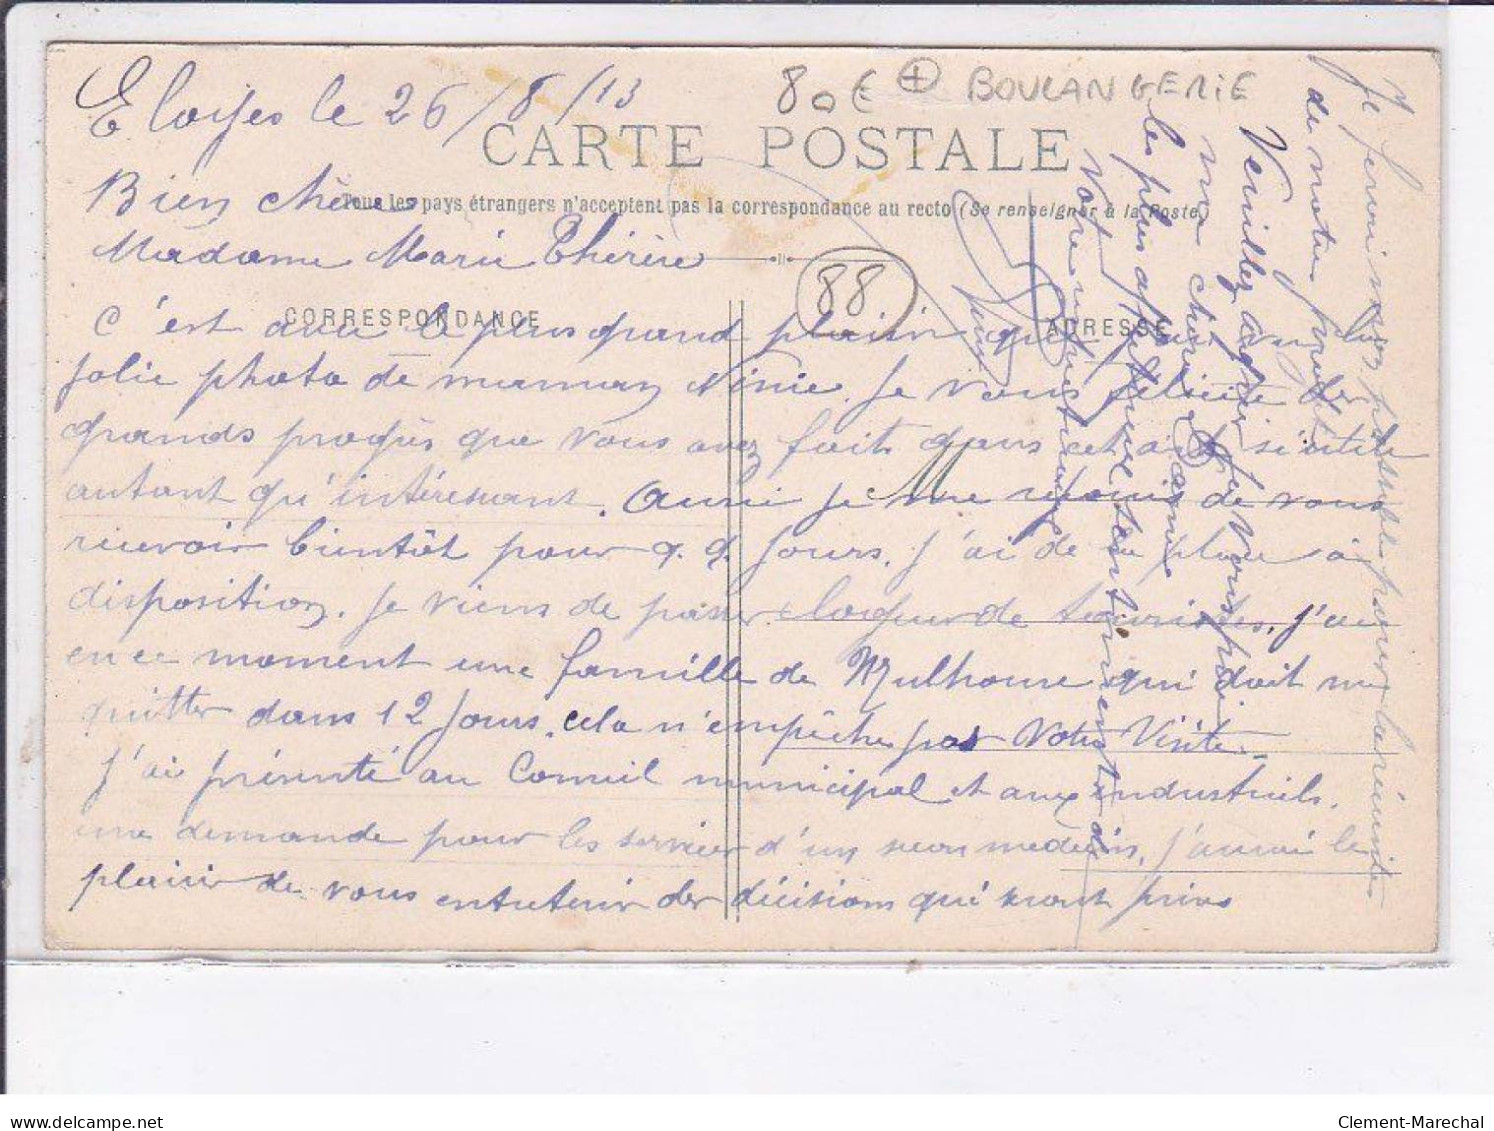 Eloyes le 26/8/13
80€ + BOULANGERIE
CARTE POSTALE
Tous les pays étrangers n'acceptent pas la correspondance au recto (Se renseigner à la Poste)
Bien chère
Madame Marie Thérèse
88
CORRESPONDANCE
ADRESSE
C'est avec le plus grand plaisir que j'ai vu la
jolie photo de maman Ninie. Je vous félicite des
grands progrès que vous avez fait dans cet art si utile
autant qu'intéressant. Aussi je me réjouis de vous
recevoir bientôt pour q. q. jours. J'ai de la place à
disposition. Je viens de passer de touristes, j'ai
en ce moment une famille de Mulhouse qui doit me
quitter dans 12 jours, cela n'empêche pas votre visite.
J'ai présenté au Conseil municipal et aux industriels.
une demande pour les services d'un médecin, j'aurai le
plaisir de vous entretenir des décisions qui seront prises
Je ferai mon possible pour la réunion
de notre
Veuillez agréer je vous prie
ma chère Dame
les plus affectueux sentiments de
votre